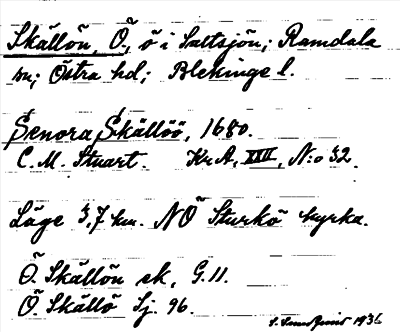 Skällön, Ö., ö i Saltsjön; Ramdala
sn; Östra hd; Blekinge l.
Senora Skällöö, 1680.
C. M. Stuart. Kr. A, XXII, N:o 32.
Läge 3,7 km. NÖ Sturkö kyrka.
Ö. Skällön ek, G. 11.
Ö. Skällö Sj. 96.
1936